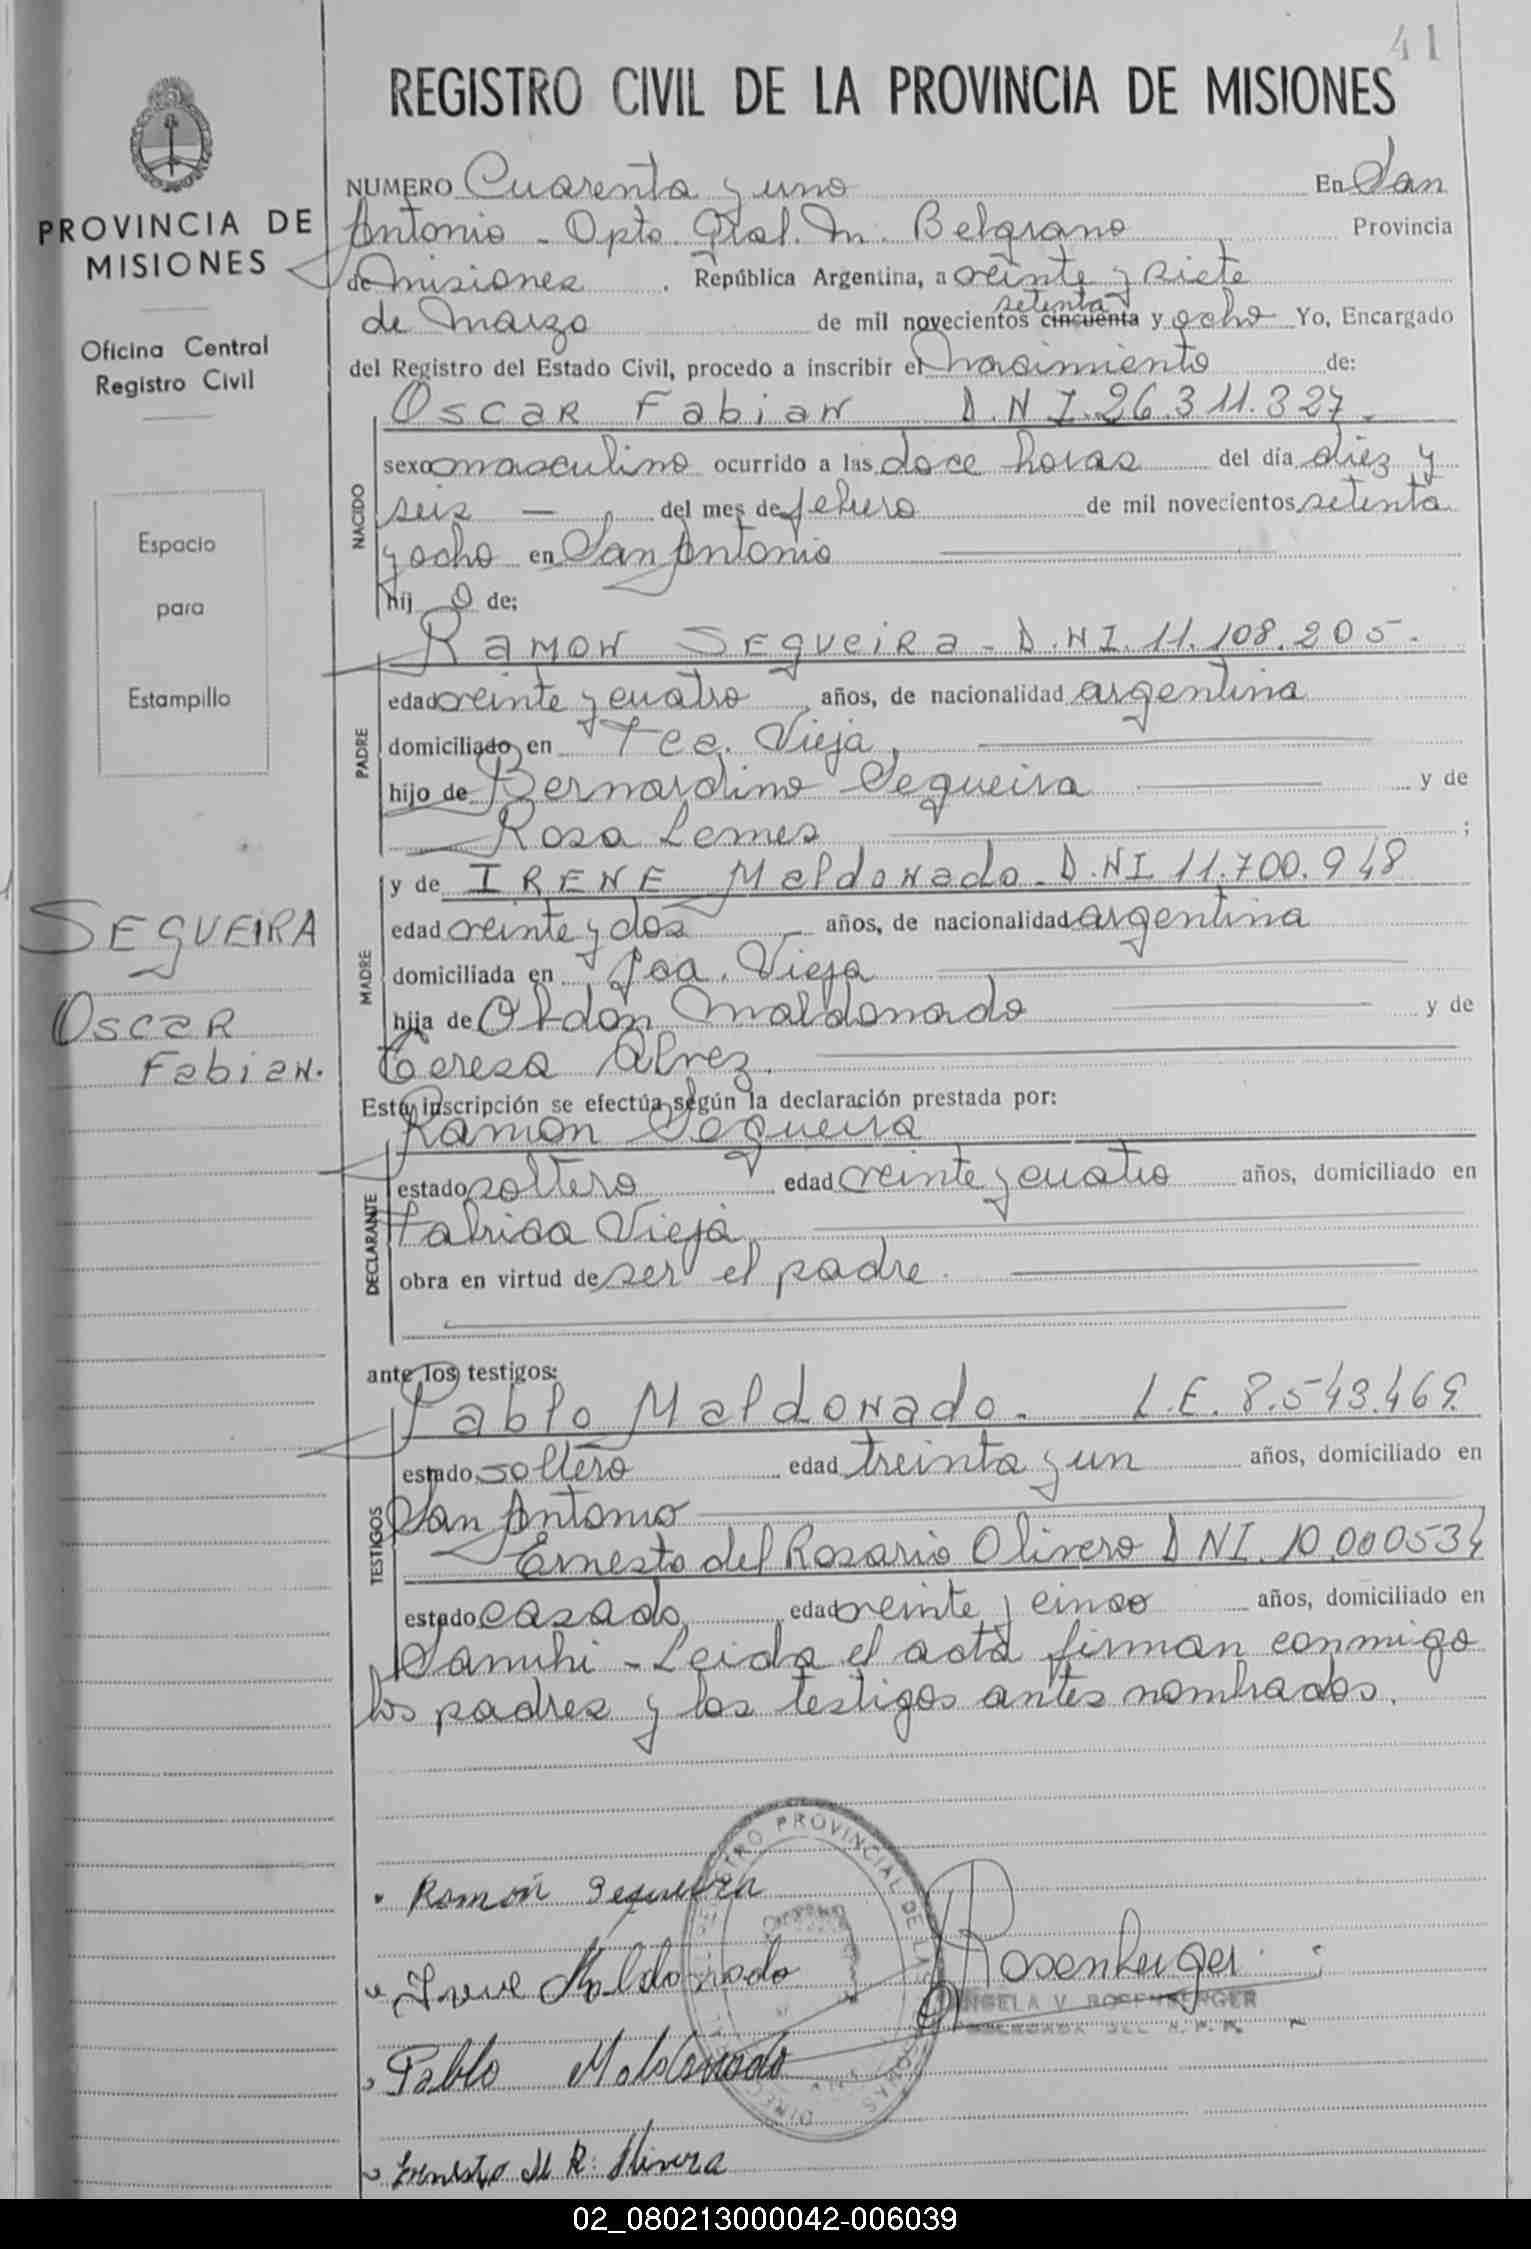 41
REGISTRO CIVIL DE LA PROVINCIA DE MISIONES
PROVINCIA DE
MISIONES
Oficina Central
Registro Civil
Espacio
para
Estampillo
SEQUEIRA
Oscar
Fabian.
NUMERO Cuarenta y uno En San
Antonio - Dpto. Gral. M. Belgrano Provincia
de Misiones. República Argentina, a veinte y siete
setenta
de Marzo de mil novecientos cincuenta y ocho Yo, Encargado
del Registro del Estado Civil, procedo a inscribir el nacimiento de:
Oscar Fabian D.N.I. 26.311.327.
NACIDO
sexo masculino ocurrido a las doce horas del día diez y
seis — del mes de febrero de mil novecientos setenta
y ocho en San Antonio
hij o de:
Ramon Sequeira - D.N.I. 11.108.205.
PADRE
edad veinte y cuatro años, de nacionalidad argentina
domiciliado en Fca. Vieja,
hijo de Bernardino Sequeira y de
Rosa Lemes ;
y de IRENE Maldonado - D.NI 11.700.948
MADRE
edad veinte y dos años, de nacionalidad argentina
domiciliada en Fca. Vieja
hija de Maldonado y de
Teresa Alvez.
Esta inscripción se efectúa según la declaración prestada por:
Ramon Sequeira
DECLARANTE
estado soltero edad veinte y cuatro años, domiciliado en
Fabrica Vieja,
obra en virtud de ser el padre.
ante los testigos:
Pablo Maldonado. L.E. 8.543.469.
TESTIGOS
estado soltero edad treinta y un años, domiciliado en
San Antonio
Ernesto del Rosario Olivero DNI. 10.000534
estado casado, edad veinte y cinco años, domiciliado en
- Leida el acta firman conmigo
los padres y los testigos antes nombrados.
Ramón Sequeira
Irene Maldonado
Pablo Maldonado
Ernesto d R. Olivera
Rosenberger
ANGELA V. ROSENBERGER
DELEGADA DEL R.P.P.
REGISTRO PROVINCIAL DE LAS PERSONAS
02_080213000042-006039